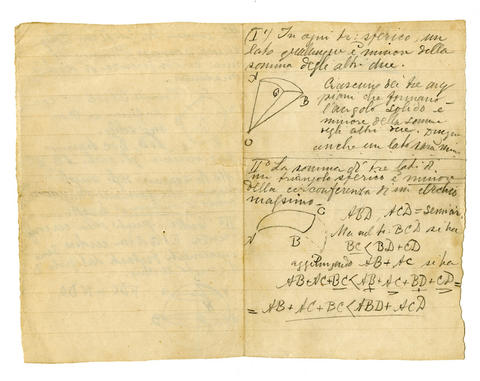 (I°) In ogni tr: sferico, un
lato qualunque è minor della
somma degli altri due.
A
C
B
O
Ciascuno dei tre an
goloni che formano
l'angolo solido è
minore della somma
degli altri due. Dunque
anche un lato sarà min
II° La somma di tre lati di
un triangolo sferico è minore
della circonferenza di un circolo
massimo.
A
B
C
ABD, ACD = semicir.
Ma nel tr: BCD si ha
BC < BD + CD
aggiungendo AB + AC si ha
AB + AC + BC < AB + AC + BD + CD =
= AB + AC + BC < ABD + ACD